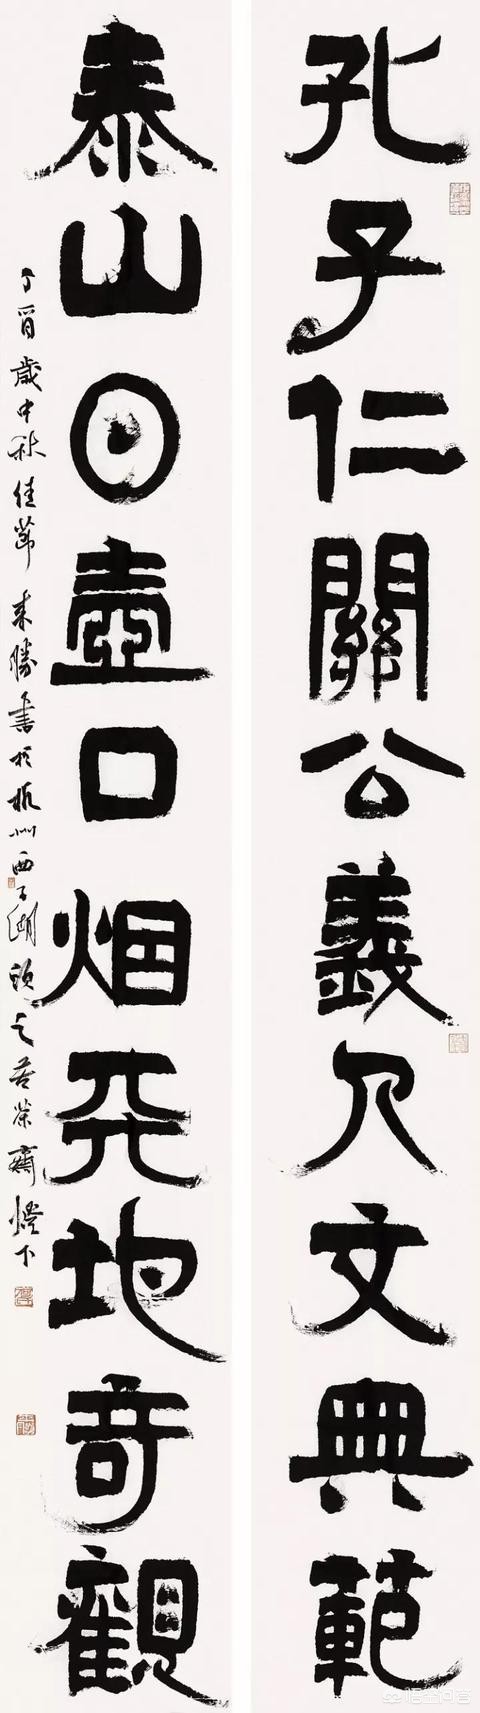 孔子仁關公義人文典範
泰山日壺口烟天地奇觀
丁酉歲中秋佳節 来勝書於杭州西子湖頭之齋燈下
悟空问答